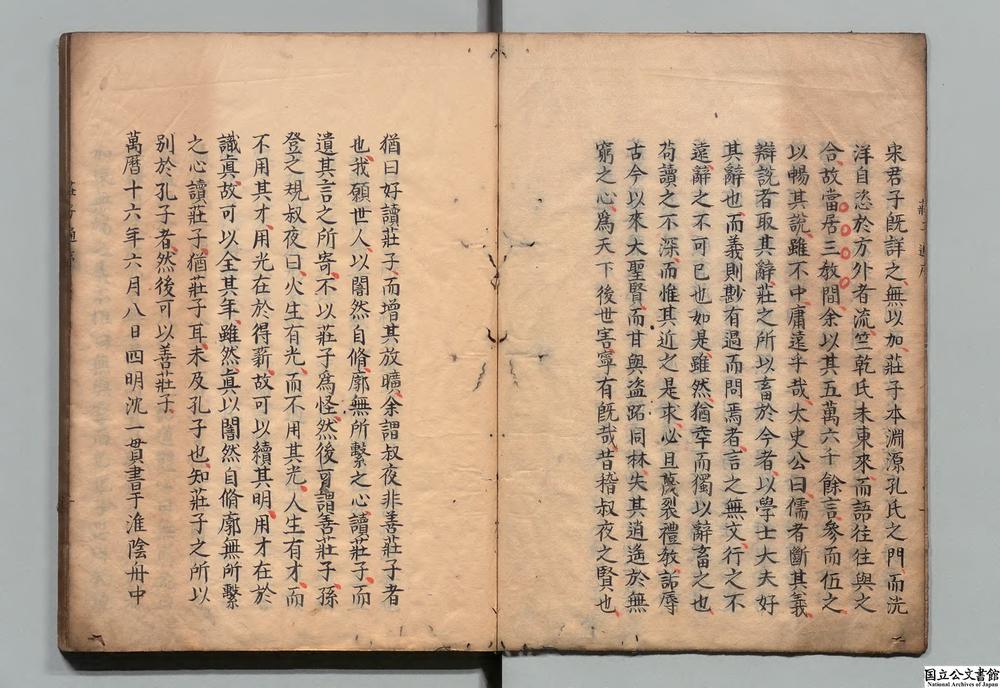 宋君子既詳之無以加莊子本淵源孔氏之門而洸
洋自恣於方外者流竺乾氏未東來而語往往與之
合故當居三教間余以其五萬六千餘言參而伍之
以暢其說雖不中庸遠乎哉太史公曰儒者斷其義
辯說者取其辭莊之所以畜於今者以學士大夫好
其辭也而義則尠有過而問焉者言之無文行之不
遠辭之不可已也如是雖然猶幸而獨以辭畜之也
苟讀之不深而惟其近之是求必且蔑裂禮教詬辱
古今以來大聖賢而甘與盗跖同林失其逍遙於無
窮之心為天下後世害寧有既哉昔嵇叔夜之賢也
猶曰好讀莊子而增其放曠余謂叔夜非善莊子者
也我願世人以闇然自脩廓無所繫之心讀莊子而
遺其言之所寄不以莊子為怪然後可謂善莊子孫
登之規叔夜曰火生有光而不用其光人生有才而
不用其才用光在於得薪故可以續其明用才在於
識真故可以全其年雖然真以闇然自脩廓無所繫
之心讀莊子猶莊子耳未及孔子也知莊子之所以
别於孔子者然後可以善莊子
萬曆十六年六月八日四明沈一貫書于淮陰舟中
国立公文書館
National Archives of Japan